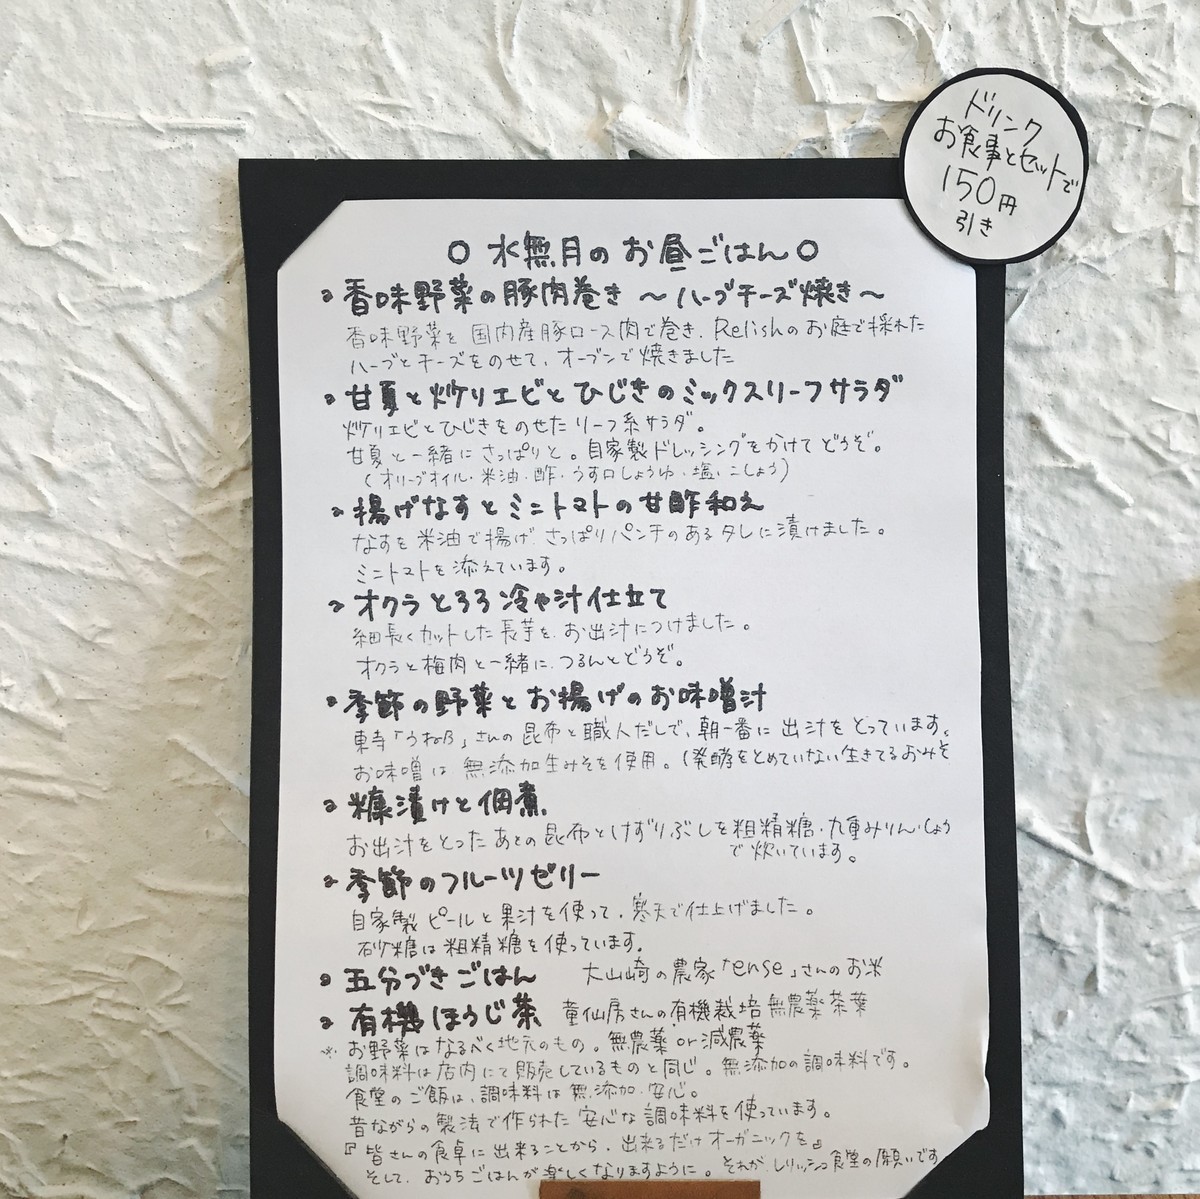 ドリンク
お食事とセットで
150円
引き
○ 水無月のお昼ごはん ○
香味野菜の豚肉巻き 〜ハーブチーズ焼き〜
香味野菜を国内産豚ロース肉で巻き、Relishのお庭で採れた
ハーブとチーズをのせて、オーブンで焼きました
甘夏と炒りエビとひじきのミックスリーフサラダ
炒りエビとひじきをのせたリーフ系サラダ。
甘夏と一緒にさっぱりと。自家製ドレッシングをかけてどうぞ。
(オリーブオイル・米油・酢・うす口しょうゆ・塩・こしょう)
揚げなすとミニトマトの甘酢和え
なすを米油で揚げ、さっぱりパンチのあるタレに漬けました。
ミニトマトを添えています。
オクラとろろ冷や汁仕立て
細長くカットした長芋を、お出汁につけました。
オクラと梅肉と一緒に、つるんとどうぞ。
季節の野菜とお揚げのお味噌汁
東寺「うね乃」さんの昆布と職人だしで、朝一番に出汁をとっています。
お味噌は無添加生みそを使用。(発酵をとめていない生きてるおみそ
糠漬けと佃煮
お出汁をとったあとの昆布とけずりぶしを粗精糖・九重みりん・しょう
で炊いています。
季節のフルーツゼリー
自家製ピールと果汁を使って、寒天で仕上げました。
砂糖は粗精糖を使っています。
五分づきごはん 大山崎の農家「ense」さんのお米
有機ほうじ茶 童仙房さんの有機栽培 無農薬茶葉
※お野菜はなるべく地元のもの。無農薬or減農薬
調味料は店内にて販売しているものと同じ。無添加の調味料です。
食堂のご飯は、調味料は無添加、安心。
昔ながらの製法で作られた安心な調味料を使っています。
『皆さんの食卓に出来ることから、出来るだけオーガニックを』
そして、おうちごはんが楽しくなりますように。それが、レリッシュ食堂の願いです